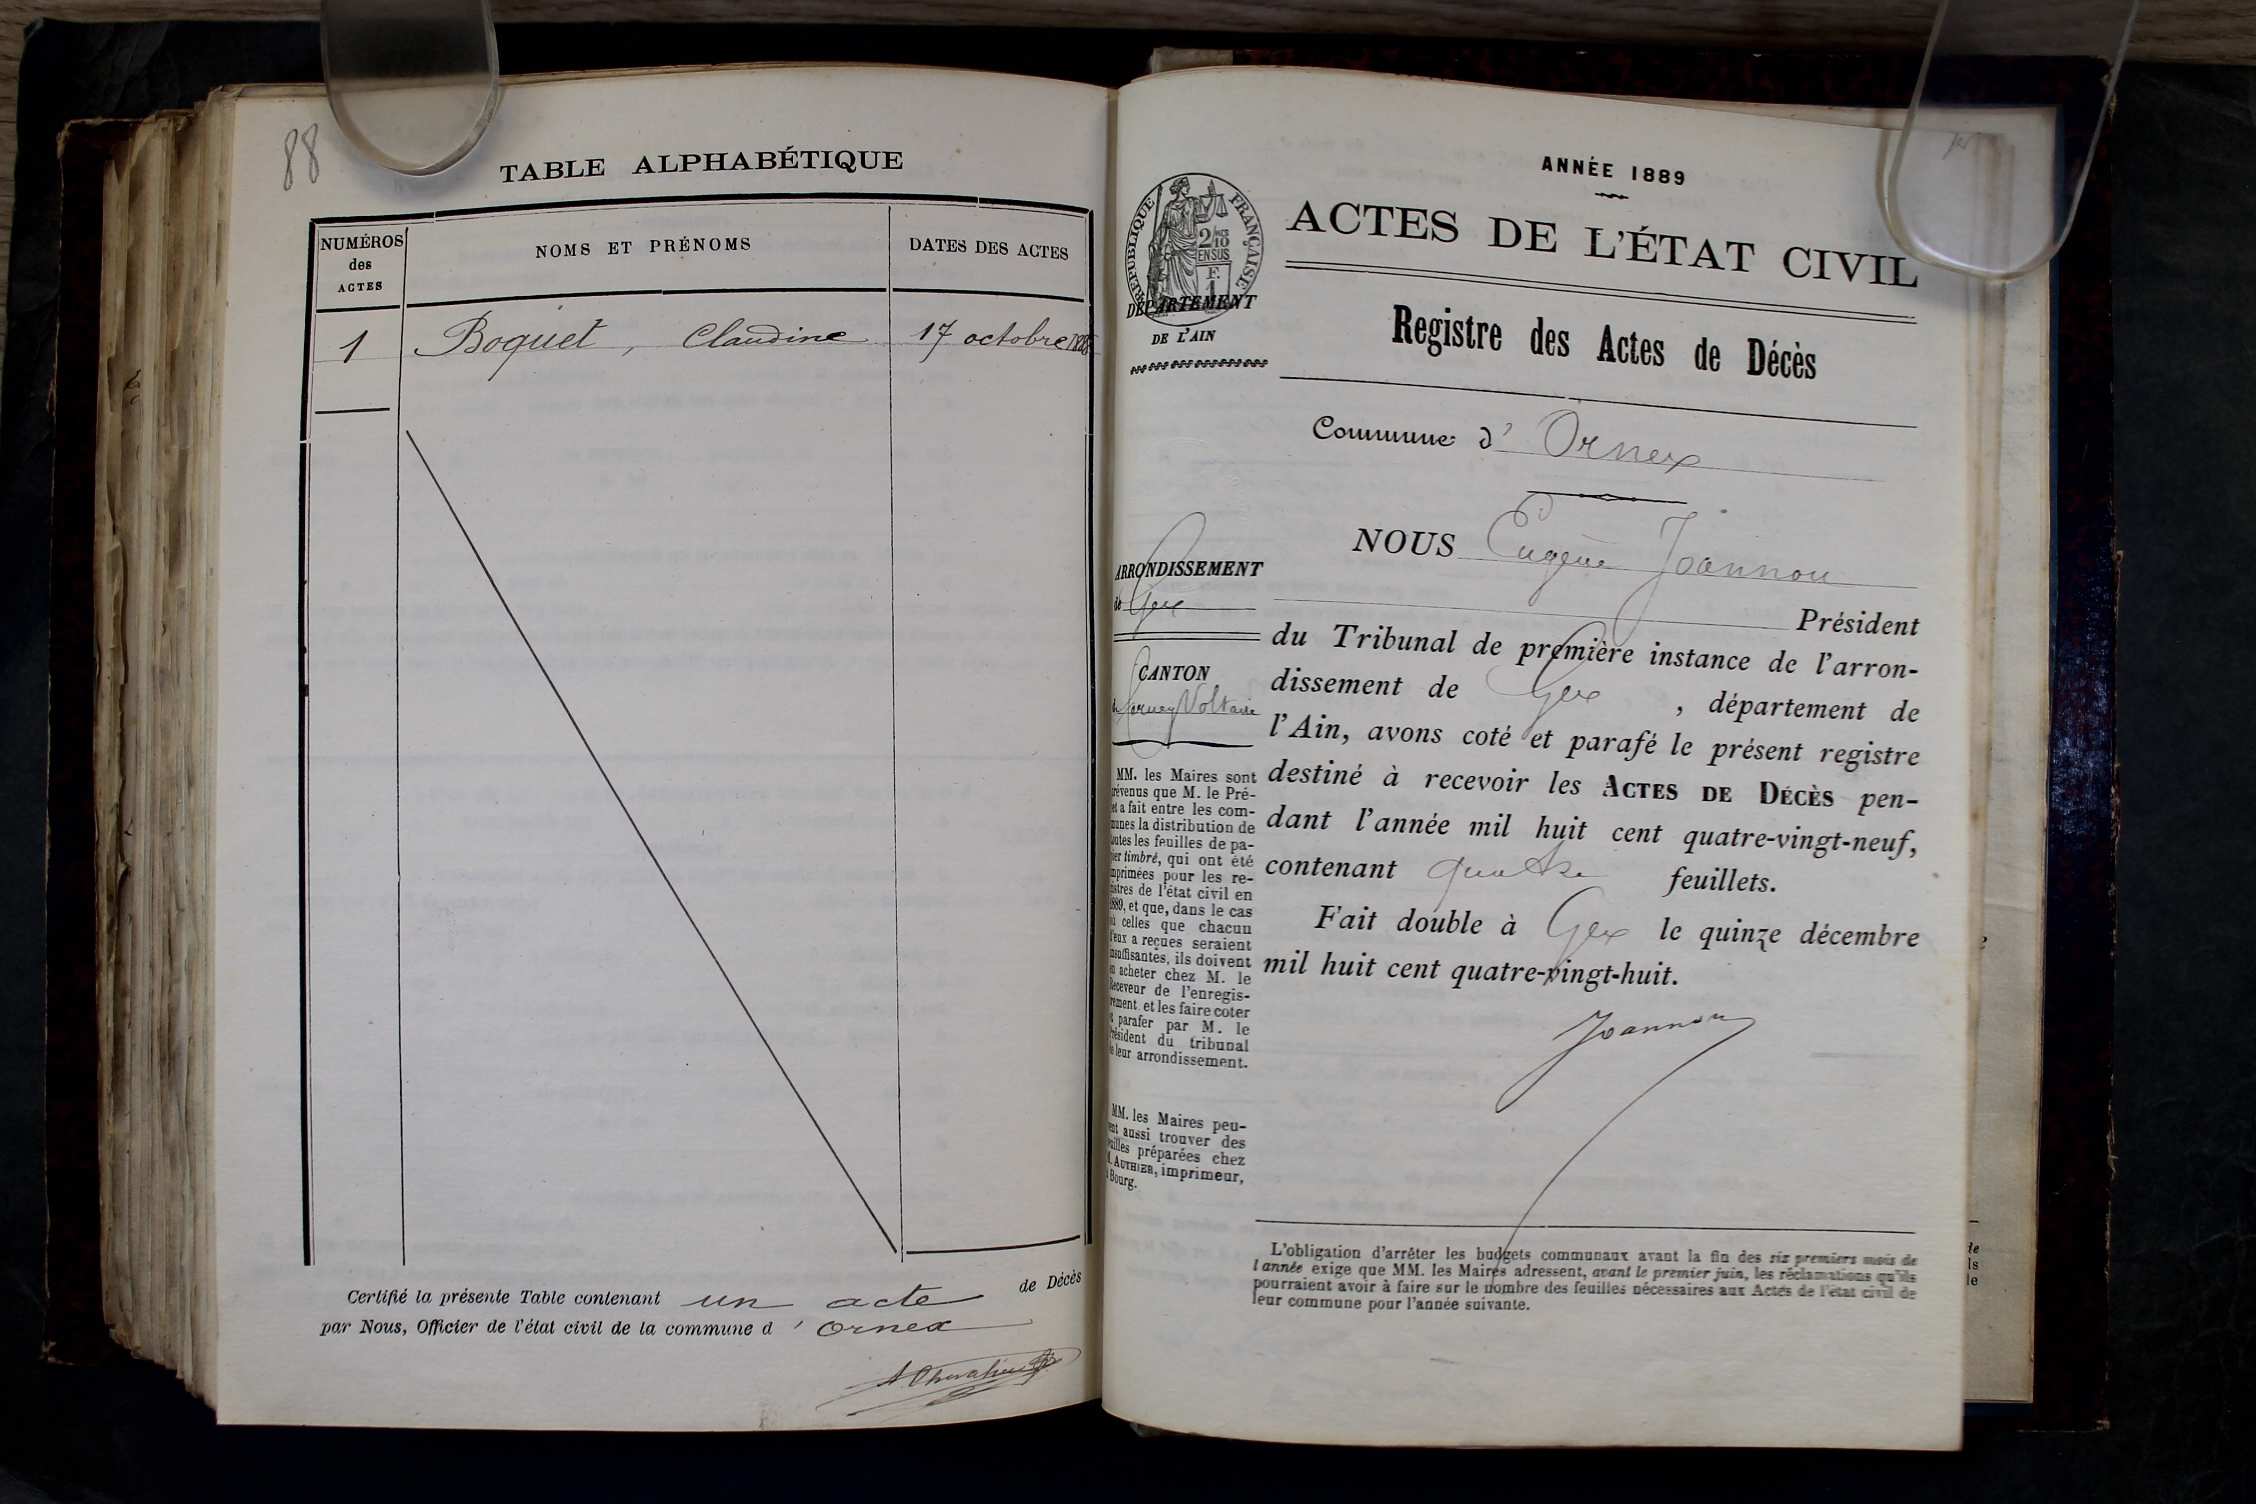 88
TABLE ALPHABÉTIQUE
NUMÉROS
des
ACTES
NOMS ET PRÉNOMS
DATES DES ACTES
1
Boquet, Claudine
17 octobre 1888
Certifié la présente Table contenant un acte de Décès
par Nous, Officier de l'état civil de la commune d'Ornex
ANNÉE 1889
ACTES DE L'ÉTAT CIVIL
RÉPUBLIQUE FRANÇAISE
2/10
EN SUS
DÉPARTEMENT
DE L'AIN
Registre des Actes de Décès
Commune d'Ornex
NOUS Eugène Joannon
Président
du Tribunal de première instance de l'arron-
dissement de Gex, département de
l'Ain, avons coté et parafé le présent registre
destiné à recevoir les ACTES DE DÉCÈS pen-
dant l'année mil huit cent quatre-vingt-neuf,
contenant quatre feuillets.
Fait double à Gex le quinze décembre
mil huit cent quatre-vingt-huit.
Joannon
ARRONDISSEMENT
de Gex
CANTON
de Ferney Voltaire
MM. les Maires sont
prévenus que M. le Pré-
et a fait entre les com-
munes la distribution de
toutes les feuilles de pa-
pier timbré, qui ont été
imprimées pour les re-
gistres de l'état civil en
1889, et que, dans le cas
où celles que chacun
d'eux a reçues seraient
insuffisantes, ils doivent
en acheter chez M. le
Receveur de l'enregis-
trement et les faire coter
et parafer par M. le
Président du tribunal
de leur arrondissement.
MM. les Maires peu-
vent aussi trouver des
feuilles préparées chez
M. AUTHIER, imprimeur,
à Bourg.
L'obligation d'arrêter les budgets communaux avant la fin des six premiers mois de
l'année exige que MM. les Maires adressent, avant le premier juin, les réclamations qu'ils
pourraient avoir à faire sur le nombre des feuilles nécessaires aux Actes de l'état civil de
leur commune pour l'année suivante.